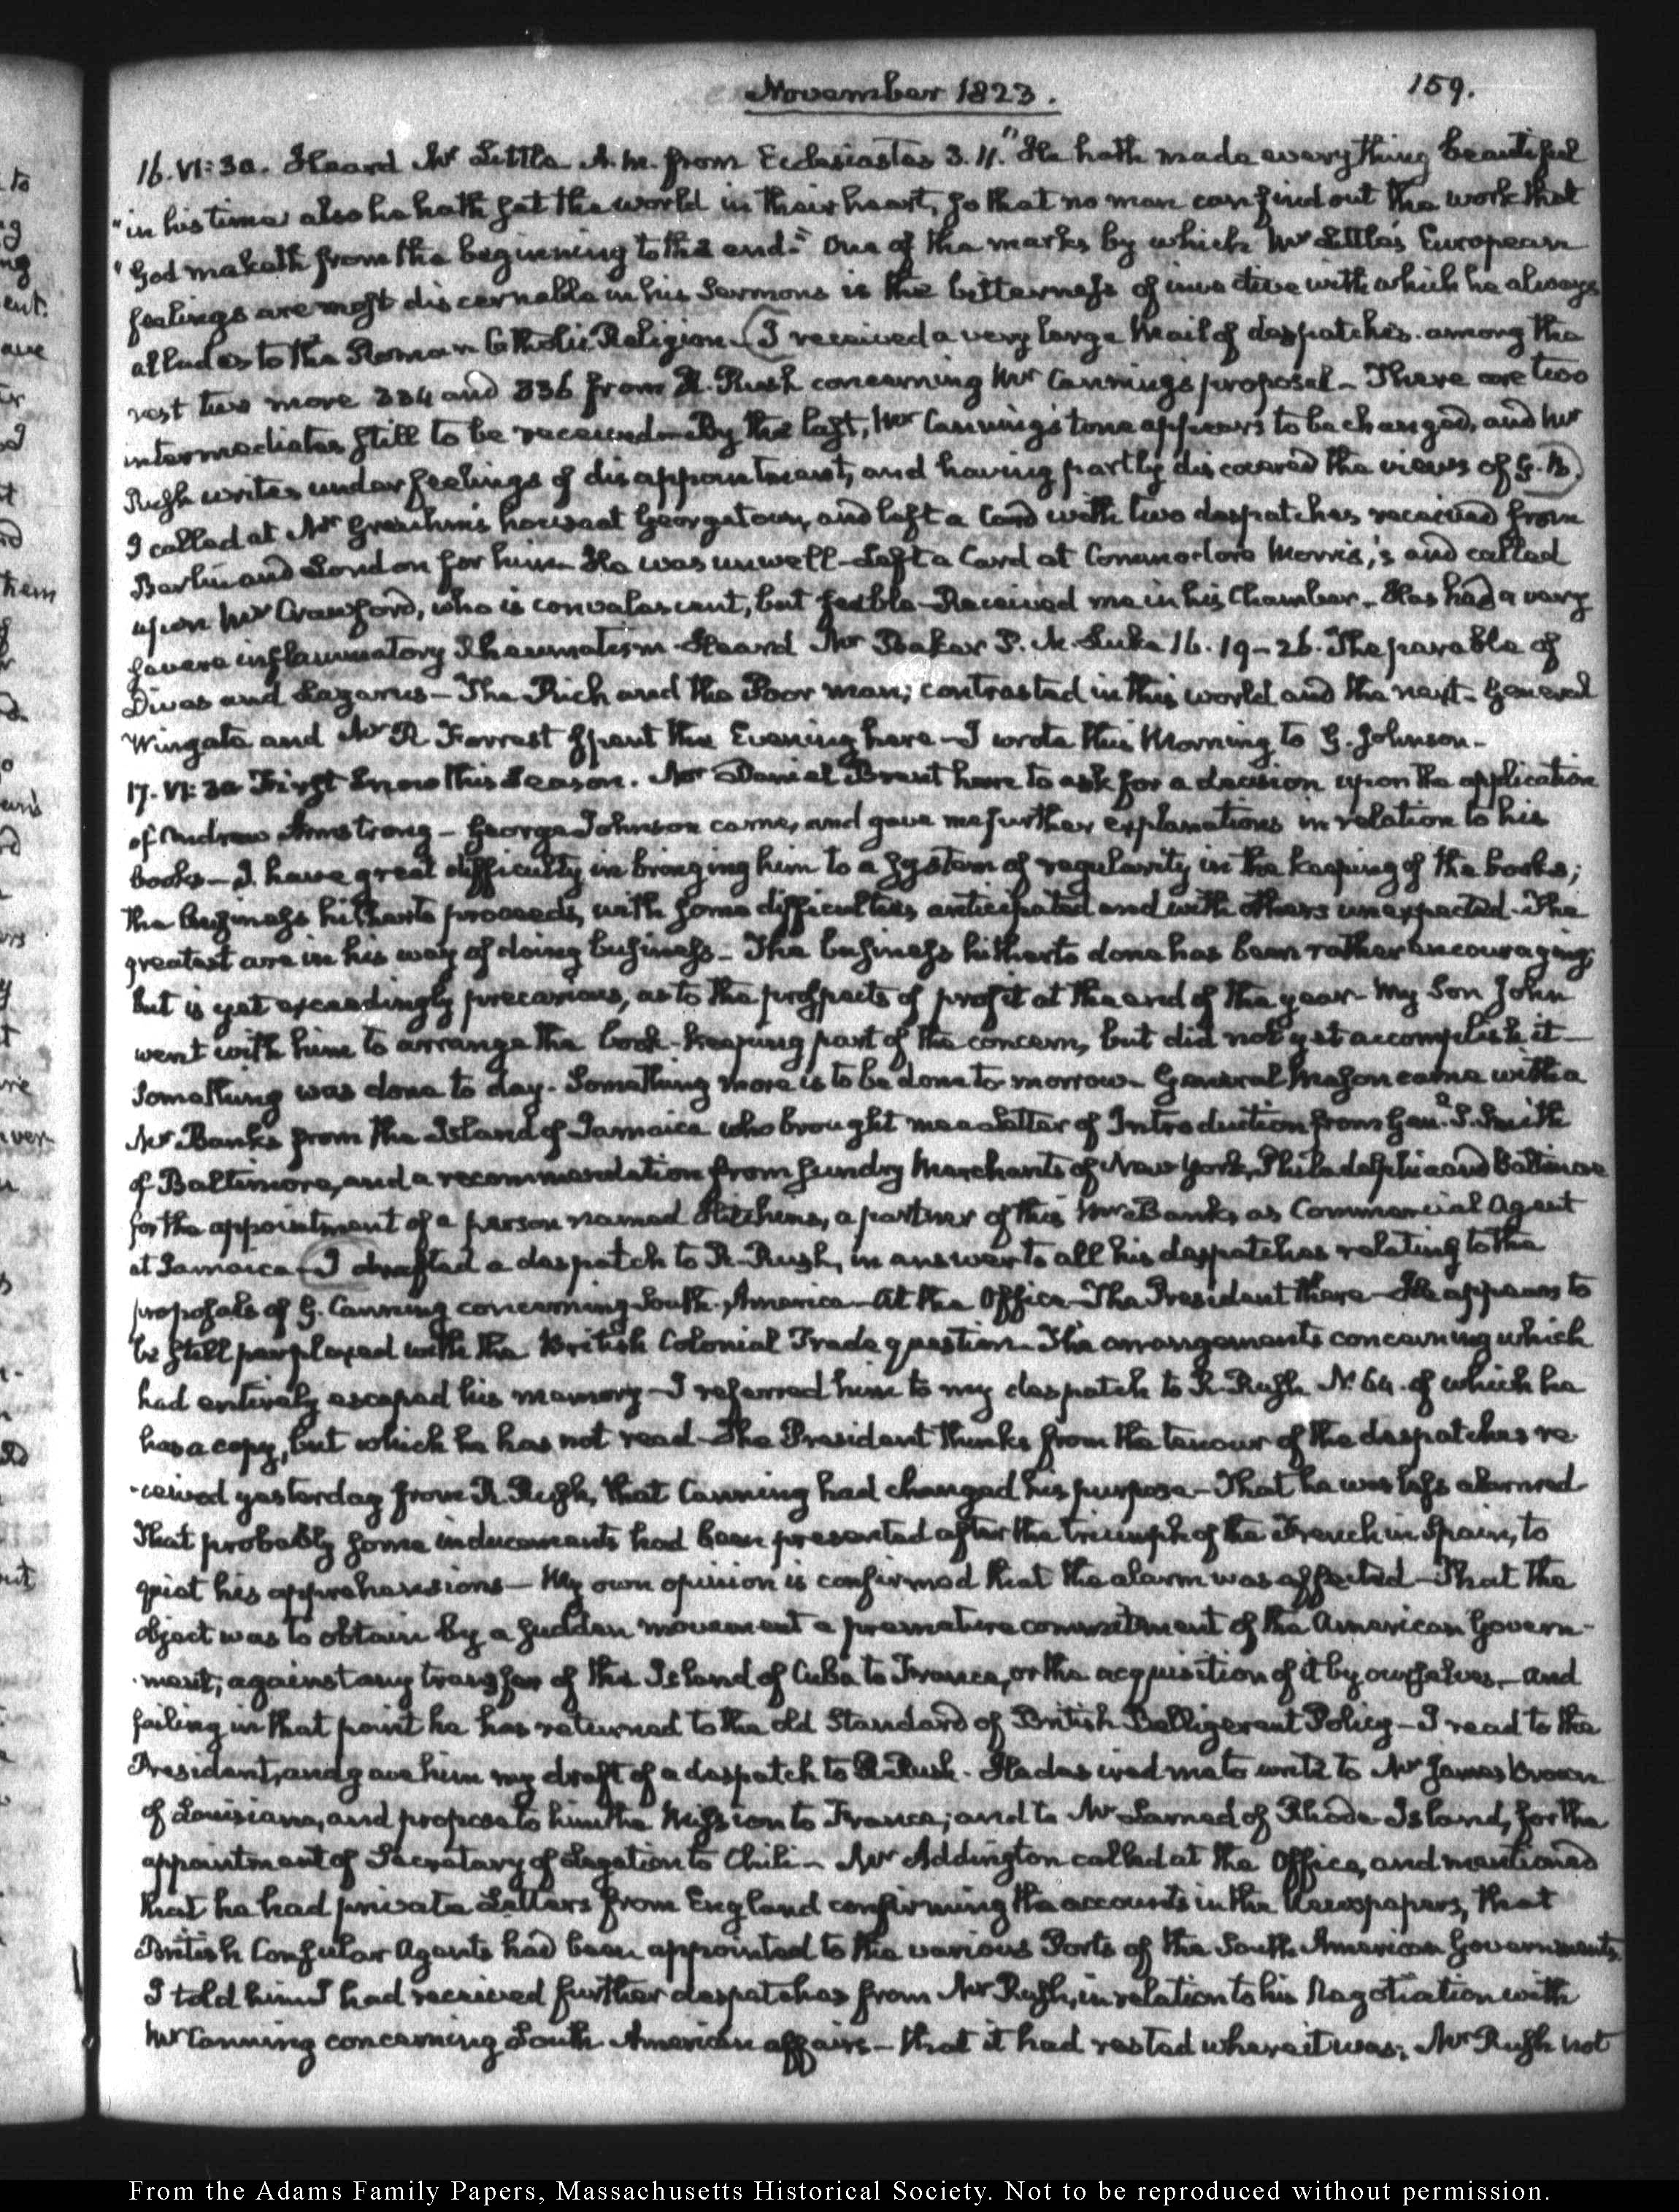 November 1823.
159.
16. VI:30. Heard Mr Little A.M. from Ecclesiastes 3.11. "He hath made everything beautiful
"in his time: also he hath set the world in their heart, so that no man can find out the work that
"God maketh from the beginning to the end." One of the marks by which Mr Little's European
feelings are most discernable in his Sermons is the bitterness of invective with which he always
alludes to the Roman Catholic Religion. I received a very large Mail of despatches. among the
rest two more 334 and 336 from R. Rush concerning Mr Canning's proposal – There are two
intermediates still to be received – By the last, Mr Canning's tone appears to be changed, and Mr
Rush writes under feelings of disappointment, and having partly discovered the views of G. B.
I called at Mr Greuhm's house at Georgetown, and left a Card with two despatches received from
Berlin and London for him – He was unwell – Left a Card at Commodore Morris,'s and called
upon Mr Crawford, who is convalescent, but feeble – Received me in his Chamber – Has had a very
severe inflammatory Rheumatism – Heard Mr Baker P. M. Luke 16. 19–26. The parable of
Dives and Lazarus – The Rich and the Poor man; contrasted in this world and the next – General
Wingate and Mr R Forrest spent the Evening here – I wrote this Morning to G. Johnson –
17. VI:30 First Snow this Season. Mr Daniel Brent here to ask for a decision upon the application
of Andrew Armstrong – George Johnson came, and gave me further explanations in relation to his
books – I have great difficulty in bringing him to a system of regularity in the keeping of the books;
the business hitherto proceeds, with some difficulties anticipated and with others unexpected – The
greatest are in his way of doing business – The business hitherto done has been rather encouraging;
but is yet exceedingly precarious, as to the prospects of profit at the end of the year – My Son John
went with him to arrange the book-keeping part of the concern, but did not yet accomplish it –
Something was done to day – Something more is to be done to-morrow – General Mason came with a
Mr Banks from the Island of Jamaica who brought me a Letter of Introduction from Genl S. Smith
of Baltimore, and a recommendation from sundry Merchants of New York, Philadelphia and Baltimore
for the appointment of a person named Hitchins, a partner of this Mr Banks as Commercial Agent
at Jamaica – I drafted a despatch to R. Rush, in answer to all his despatches relating to the
proposals of G. Canning concerning South-America – At the Office – The President there – He appears to
be still perplexed with the British Colonial Trade question – The arrangements concerning which
had entirely escaped his memory – I referred him to my despatch to R. Rush N. 64. of which he
has a copy, but which he has not read – The President thinks from the tenour of the despatches re-
-ceived yesterday from R. Rush, that Canning had changed his purpose – That he was less alarmed
That probably some inducements had been presented after the triumph of the French in Spain, to
quiet his apprehensions – My own opinion is confirmed that the alarm was affected – That the
object was to obtain by a sudden movement a premature commitment of the American Govern-
-ment, against any transfer of the Island of Cuba to France, or the acquisition of it by ourselves – and
failing in that point he has returned to the old Standard of British Belligerent Policy – I read to the
President, and gave him my draft of a despatch to R. Rush – He desired me to write to Mr James Brown
of Louisiana, and propose to him the Mission to France; and to Mr Larned of Rhode-Island, for the
appointment of Secretary of Legation to Chili – Mr Addington called at the Office, and mentioned
that he had private Letters from England confirming the accounts in the Newspapers, that
British Consular Agents had been appointed to the various Ports of the South American Governments.
I told him I had received further despatches from Mr Rush, in relation to his Negotiation with
Mr Canning concerning South-American affairs – that it had rested where it was; Mr Rush not
From the Adams Family Papers, Massachusetts Historical Society. Not to be reproduced without permission.